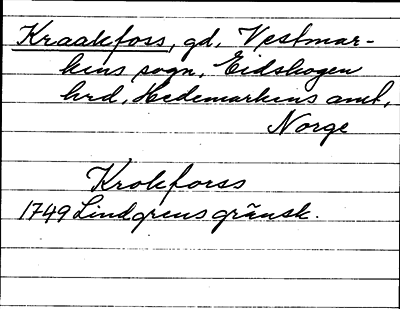 Kraakfoss, gd, Vestmar-
kens sogn, Eidskogen
hrd, Hedemarkens amt,
Norge
Krokforss
1749 Lindgrens gränsk.